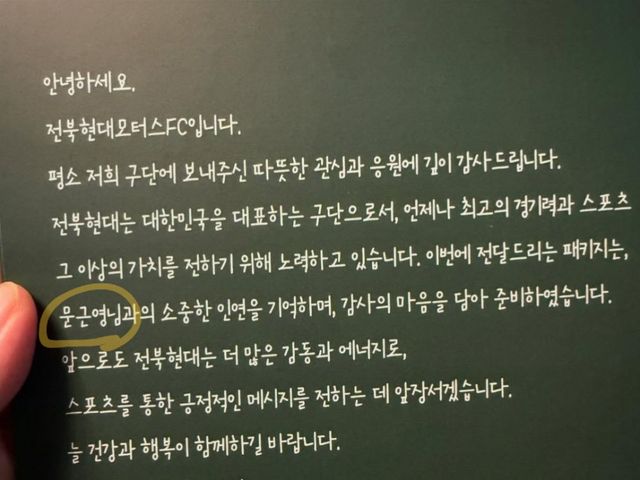 안녕하세요.
전북현대모터스FC입니다.
평소 저희 구단에 보내주신 따뜻한 관심과 응원에 깊이 감사드립니다.
전북현대는 대한민국을 대표하는 구단으로서, 언제나 최고의 경기력과 스포츠
그 이상의 가치를 전하기 위해 노력하고 있습니다. 이번에 전달드리는 패키지는,
문근영님과의 소중한 인연을 기억하며, 감사의 마음을 담아 준비하였습니다.
앞으로도 전북현대는 더 많은 감동과 에너지로,
스포츠를 통한 긍정적인 메시지를 전하는 데 앞장서겠습니다.
늘 건강과 행복이 함께하길 바랍니다.